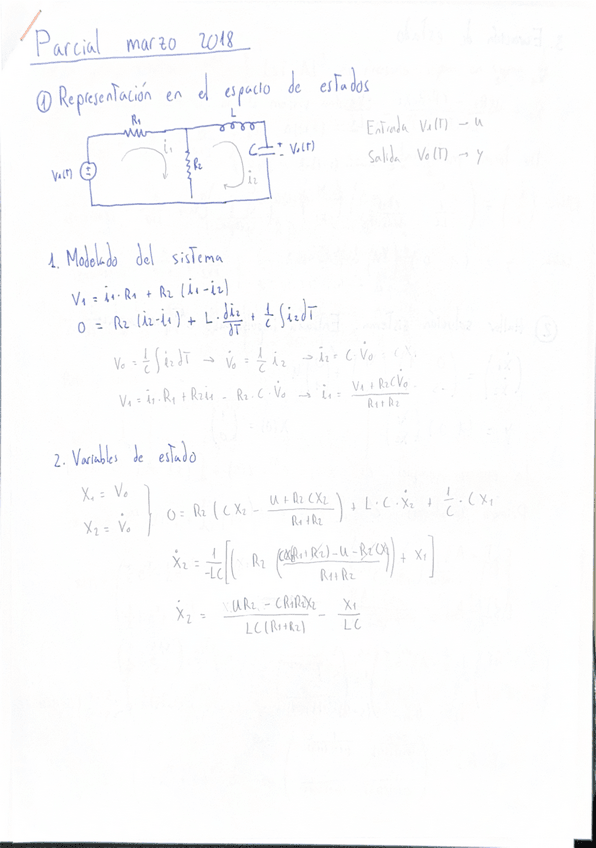 Parcial marzo 2018
① Representación en el espacio de estados
R1
L
V1(T)
i1
R2
C
+
-
V0(T)
i2
Entrada V1(T) → u
Salida V0(T) → y
1. Modelado del sistema
V1 = i1·R1 + R2 (i1-i2)
0 = R2 (i2-i1) + L·di2/dT + 1/C ∫i2dT
V0 = 1/C ∫i2dT → V̇0 = 1/C i2 → i2 = C·V̇0
V1 = i1·R1 + R2i1 - R2·C·V̇0 → i1 = (V1+R2CV̇0)/(R1+R2)
2. Variables de estado
X1 = V0
X2 = V̇0
0 = R2 (CX2 - (U+R2CX2)/(R1+R2)) + L·C·Ẋ2 + 1/C·CX1
Ẋ2 = 1/-LC [(R2 ((CX2(R1+R2)-U-R2CX2)/(R1+R2))) + X1]
Ẋ2 = (UR2 - CR1R2X2)/(LC(R1+R2)) - X1/LC